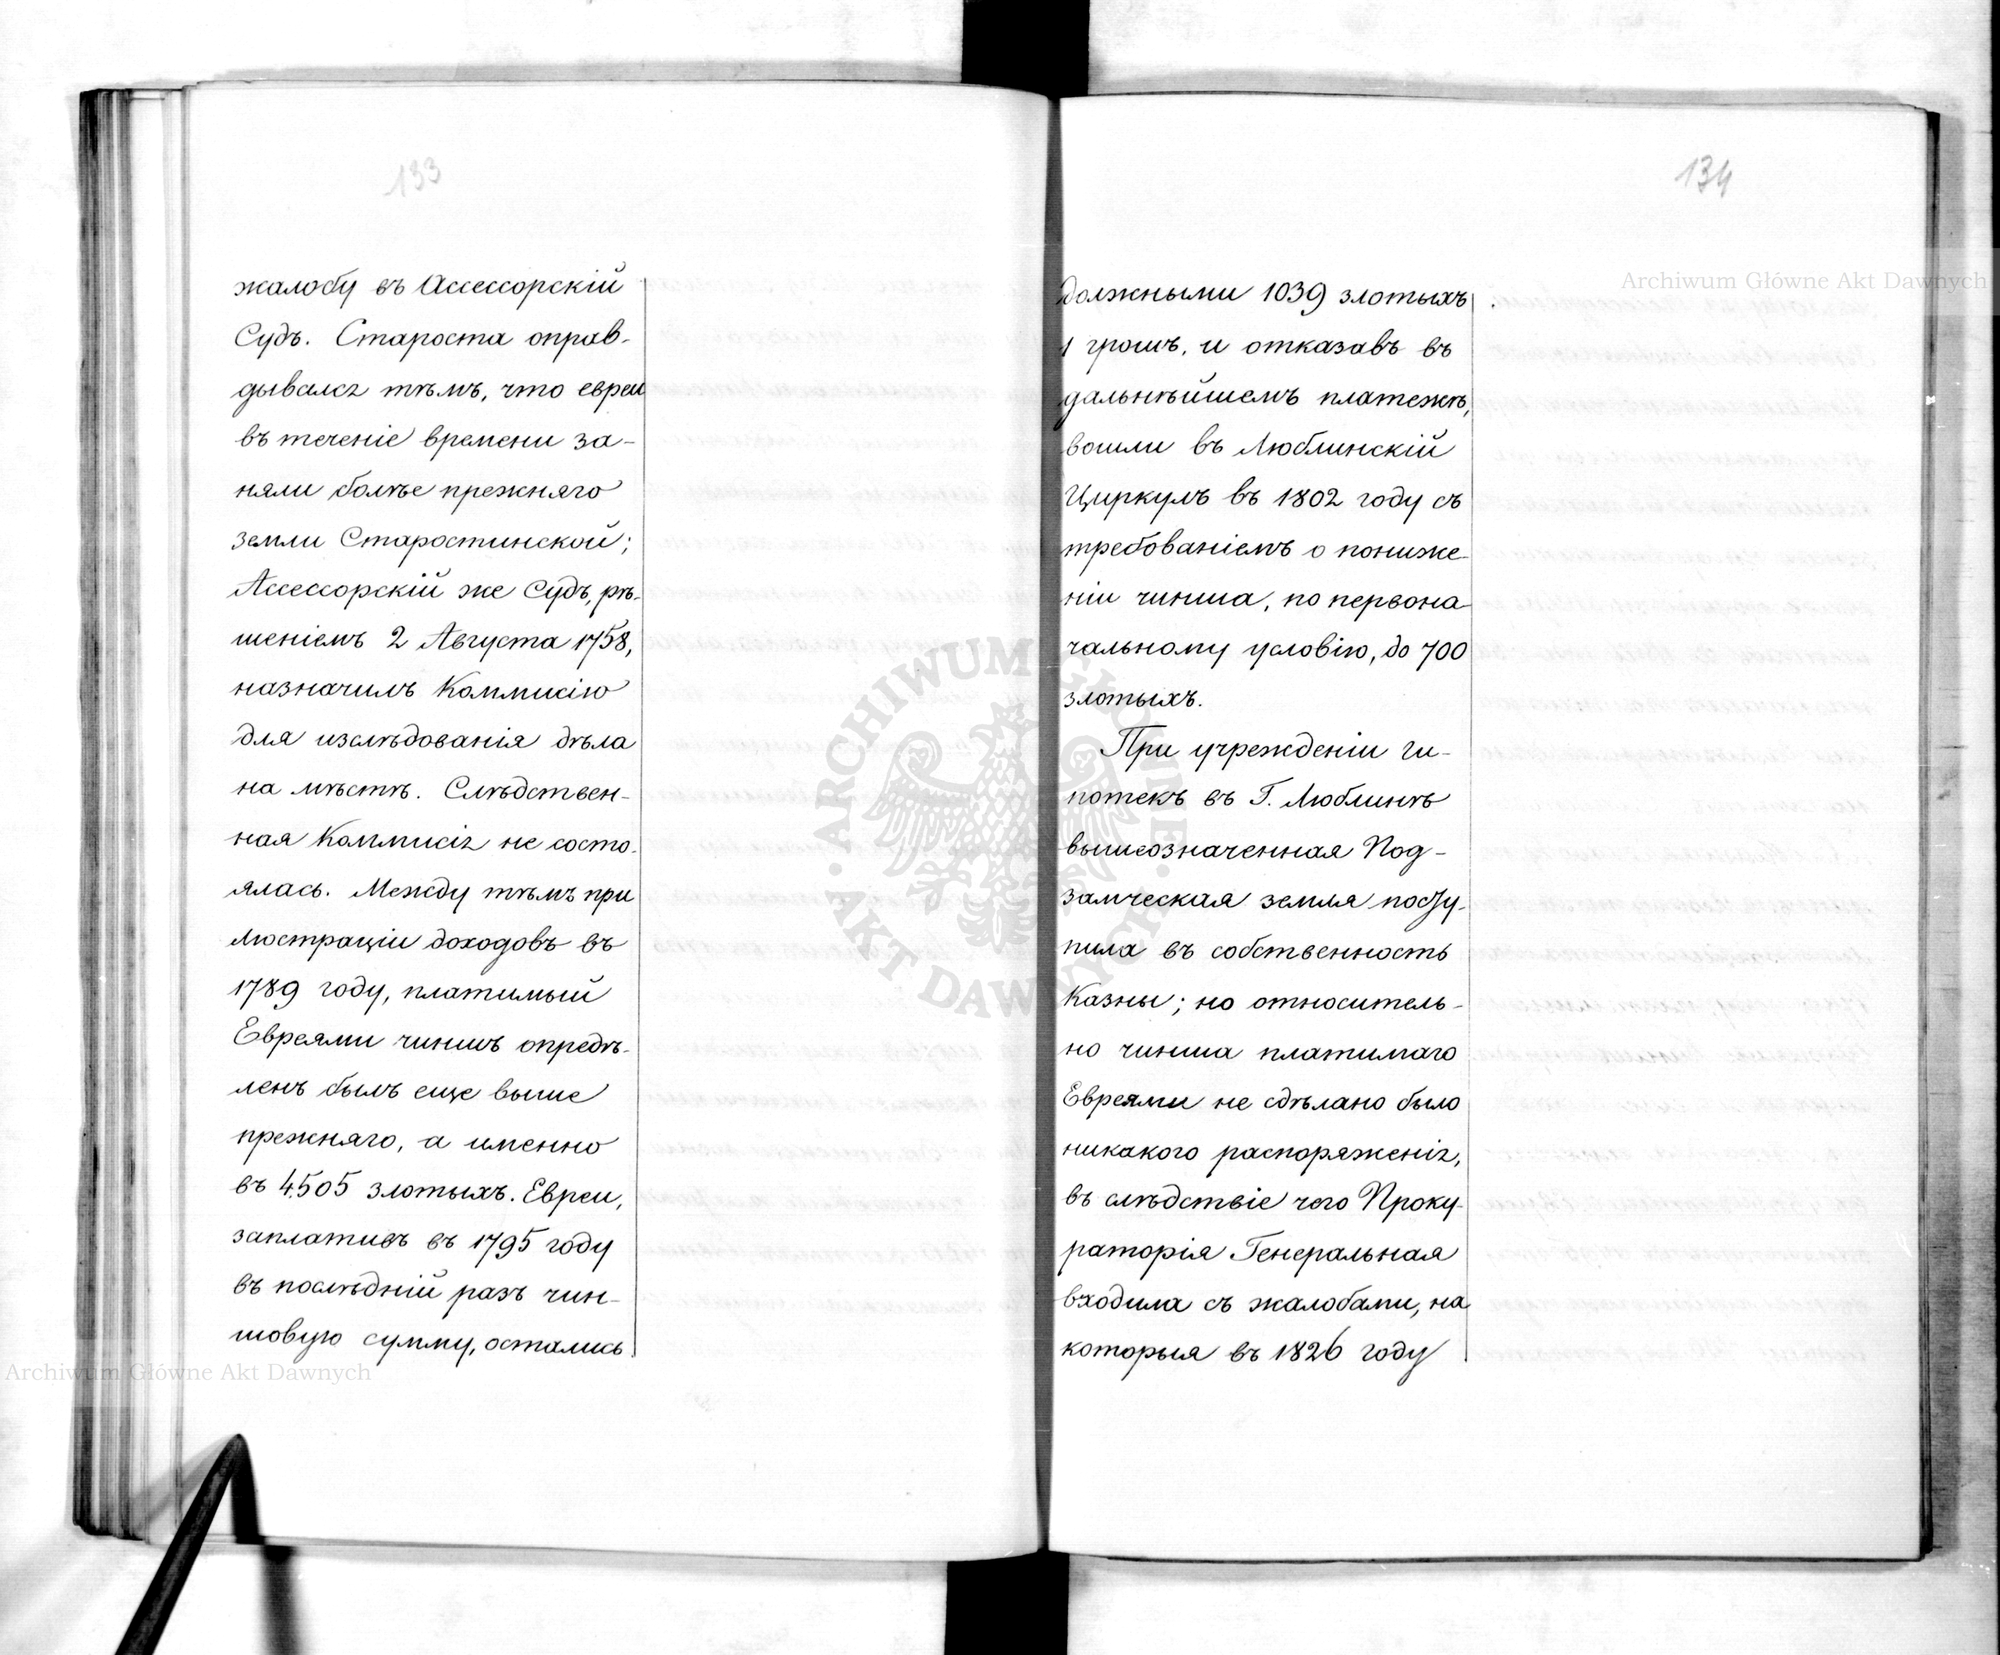 133
жалобу въ Ассессорскій
Судъ. Староста оправ-
дывался тѣмъ, что евреи
въ теченіе времени за-
няли болѣе прежняго
земли Старостинской;
Ассессорскій же Судъ, рѣ-
шеніемъ 2 Августа 1758,
назначилъ Коммисію
для изслѣдованія дѣла
на мѣстѣ. Слѣдствен-
ная Коммисія не состо-
ялась. Между тѣмъ при
люстраціи доходовъ въ
1789 году, платимый
Евреями чиншъ опредѣ-
ленъ былъ еще выше
прежняго, а именно
въ 4505 злотыхъ. Евреи,
заплативъ въ 1795 году
въ послѣдній разъ чин-
шовую сумму, остались
134
должными 1039 злотыхъ
1 грошъ, и отказавъ въ
дальнѣйшемъ платежѣ,
вошли въ Люблинскій
Циркулъ въ 1802 году съ
требованіемъ о пониже-
ніи чинша, по первона-
чальному условію, до 700
злотыхъ.
При учрежденіи ги-
потекъ въ Г. Люблинѣ
вышеозначенная Под-
замческая земля посту-
пила въ собственность
Казны; но относитель-
но чинша платимаго
Евреями не сдѣлано было
никакого распоряженія,
въ слѣдствіе чего Проку-
раторія Генеральная
входила съ жалобами, на
которыя въ 1826 году
Archiwum Główne Akt Dawnych
Archiwum Główne Akt Dawnych
ARCHIWUM GŁÓWNE
AKT DAWNYCH